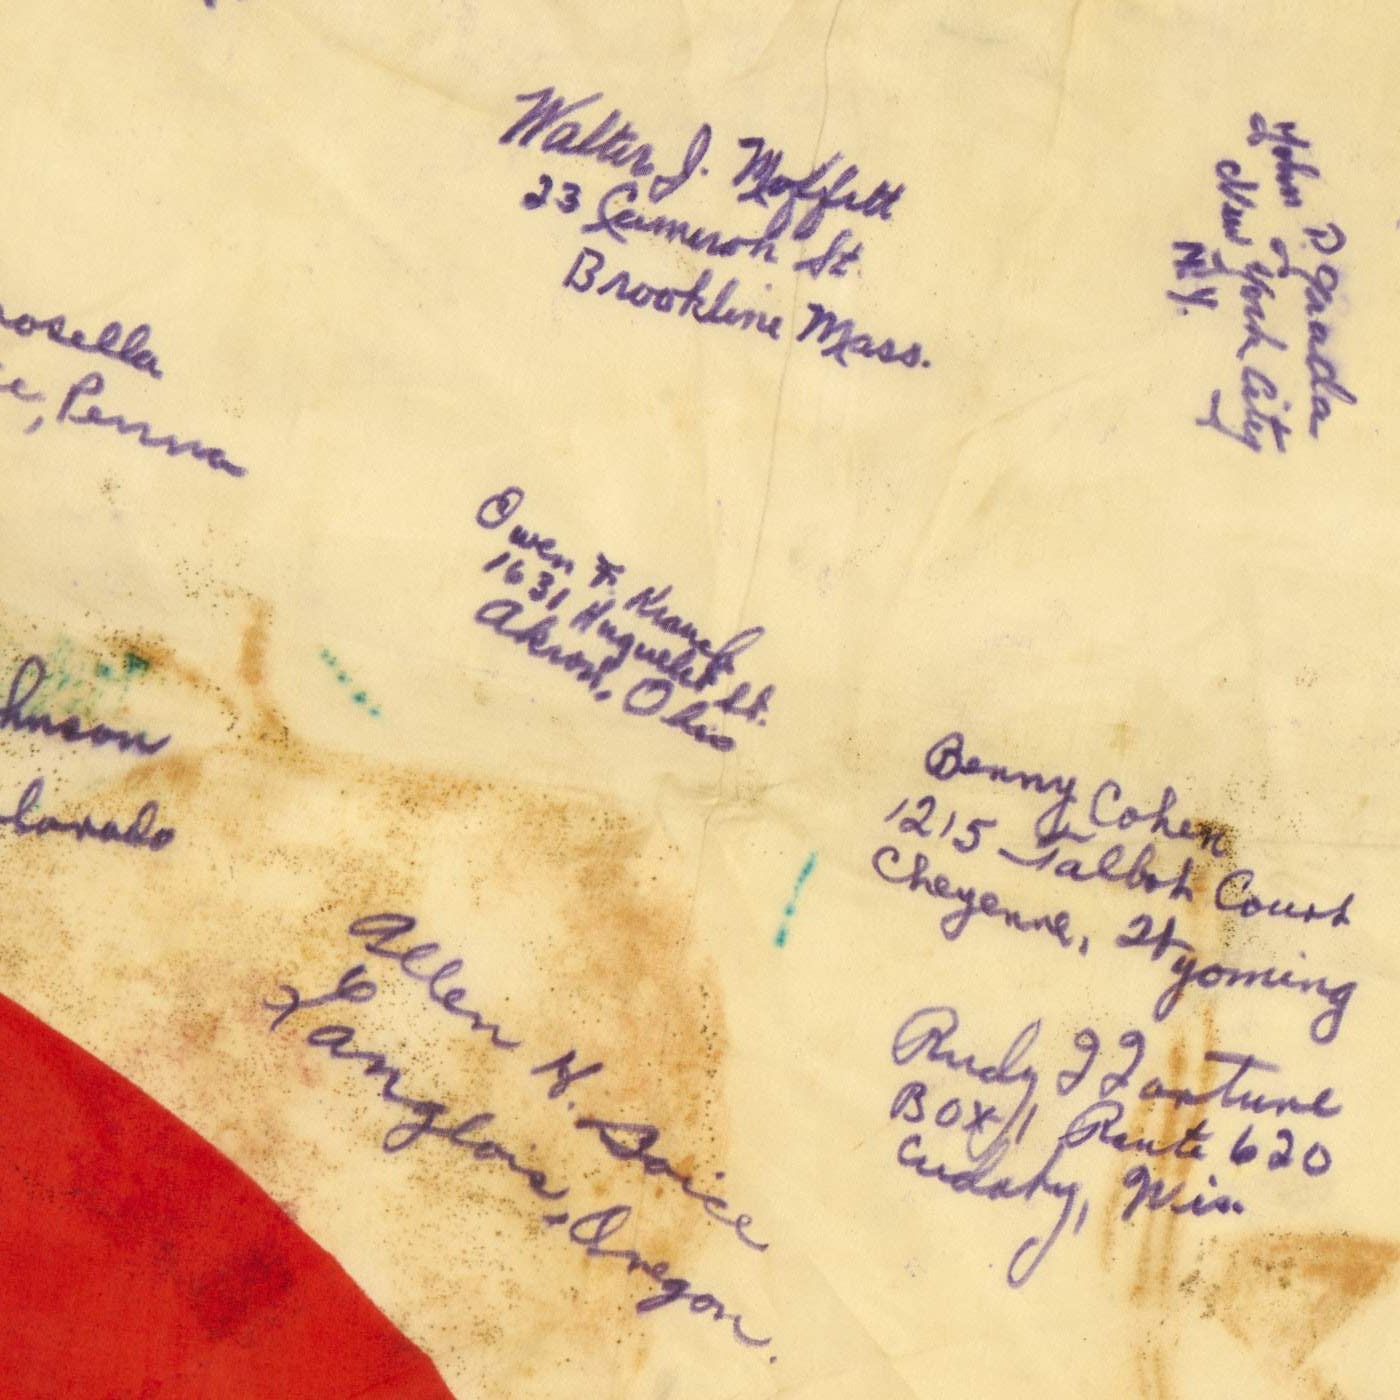 Walter J. Moffett
23 Cameron St.
Brookline Mass.
John D
New York City
N.Y.
osella
e, Penna
Owen F.
1631 St.
Akron, Ohio
hnson
lorado
Benny Cohen
1215 Talbot Court
Cheyenne, Wyoming
Allen H. Boice
Langlois, Oregon.
Rudy J Fortune
Box 1 Route 620
Cudahy, Wis.